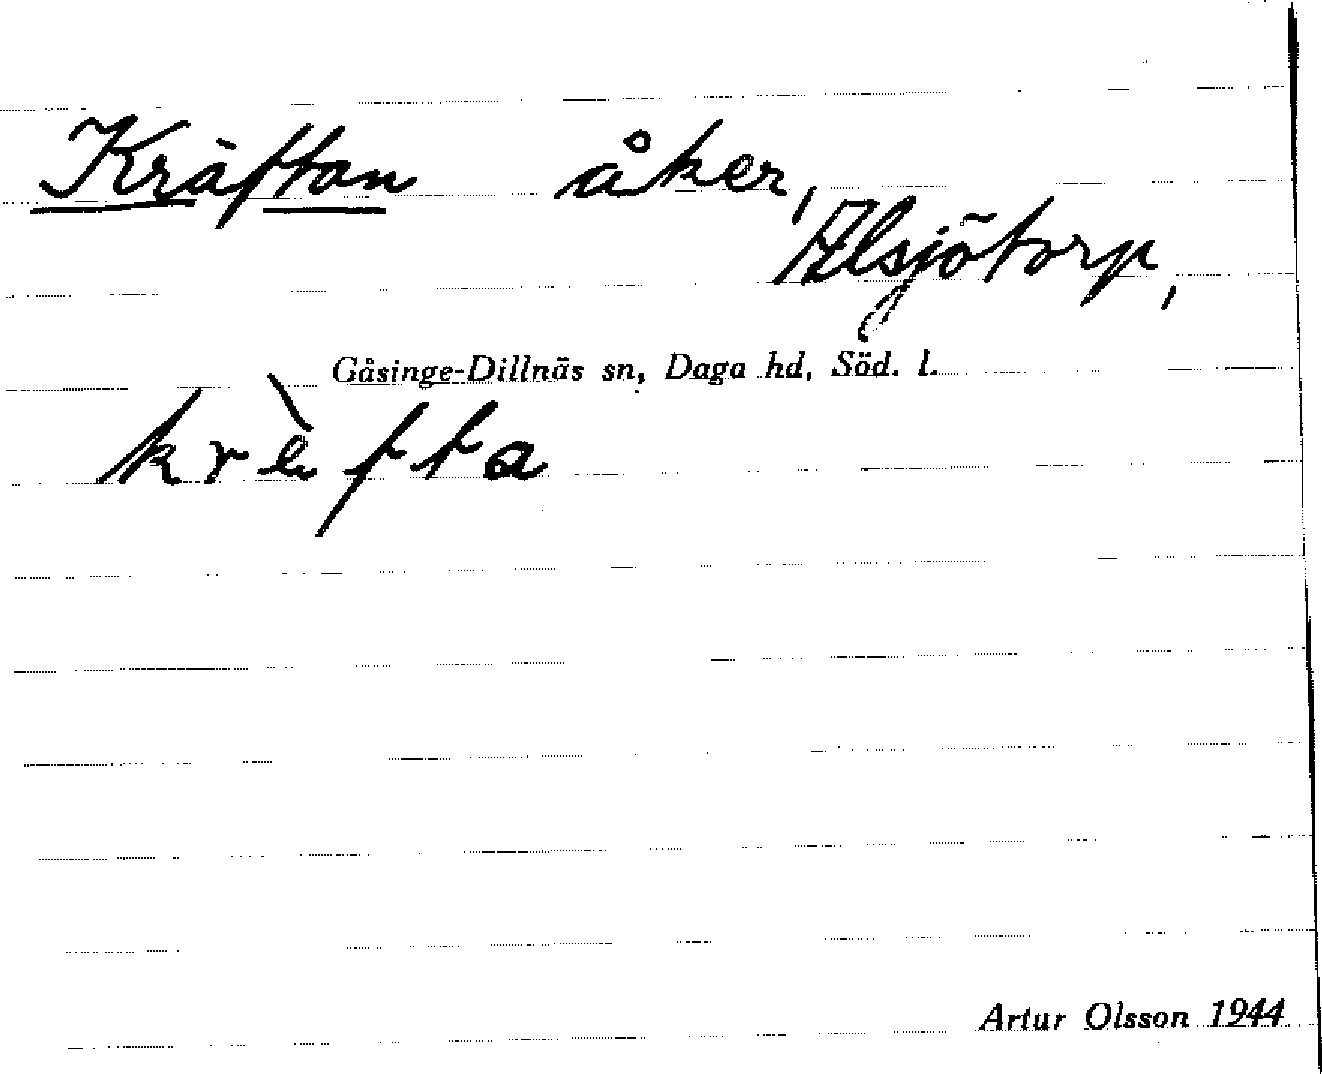 Kräftan åker,
Elsjötorp,
Gåsinge-Dillnäs sn, Daga hd, Söd. l.
krèfta
Artur Olsson 1944